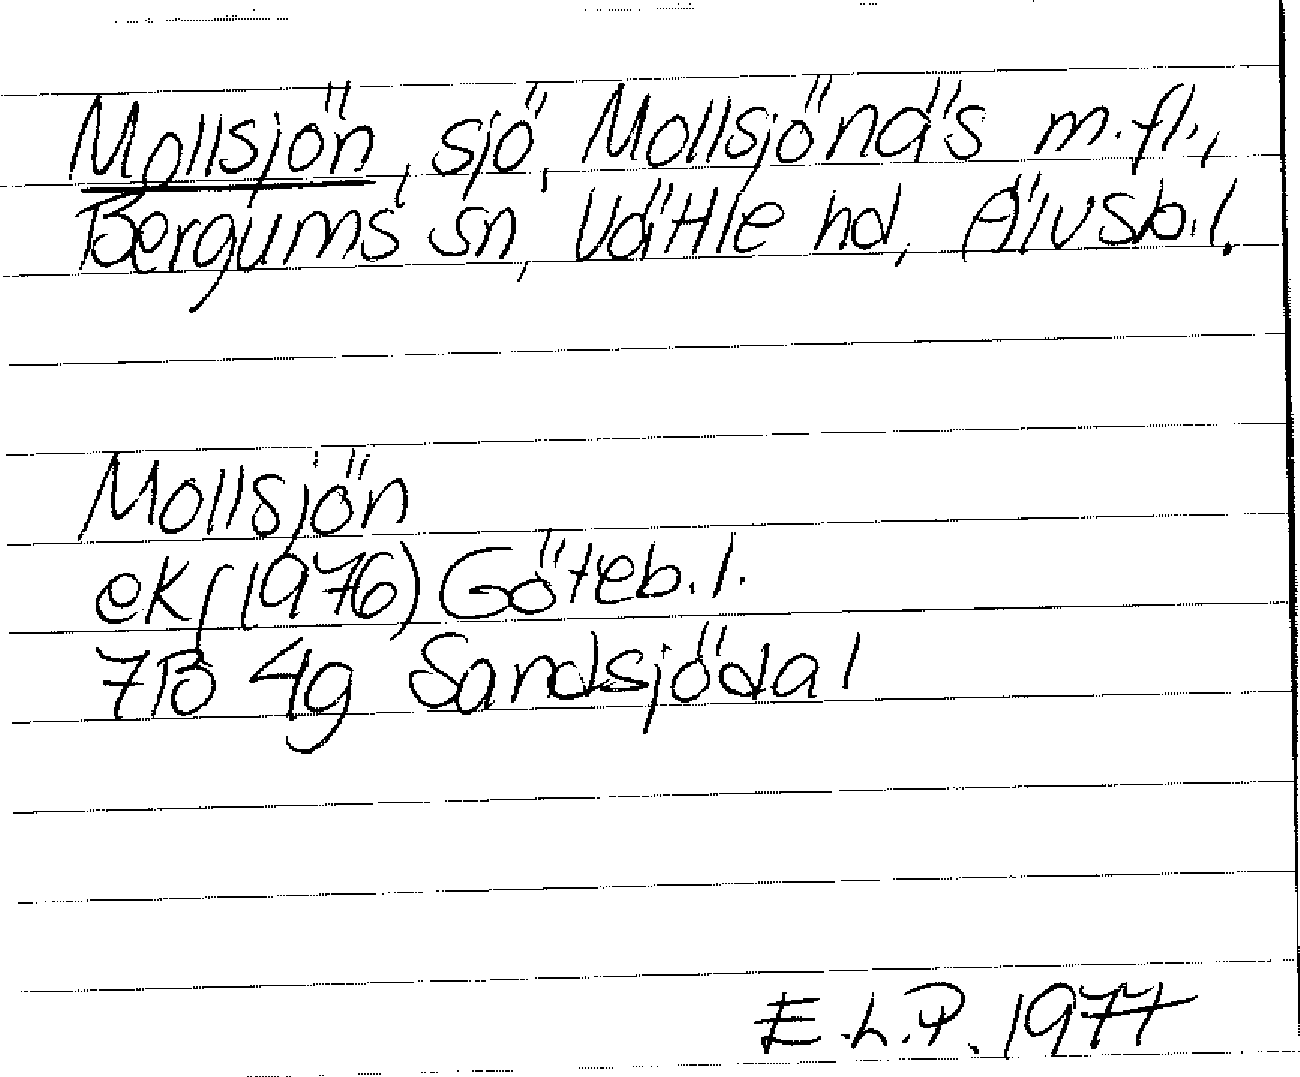 Mollsjön, sjö, Mollsjönäs m.fl.,
Bergums sn, Vättle hd, Älvsb.l.
Mollsjön
ek, (1976) Göteb.l.
7B 4g Sandsjödal
E.L.P. 1977